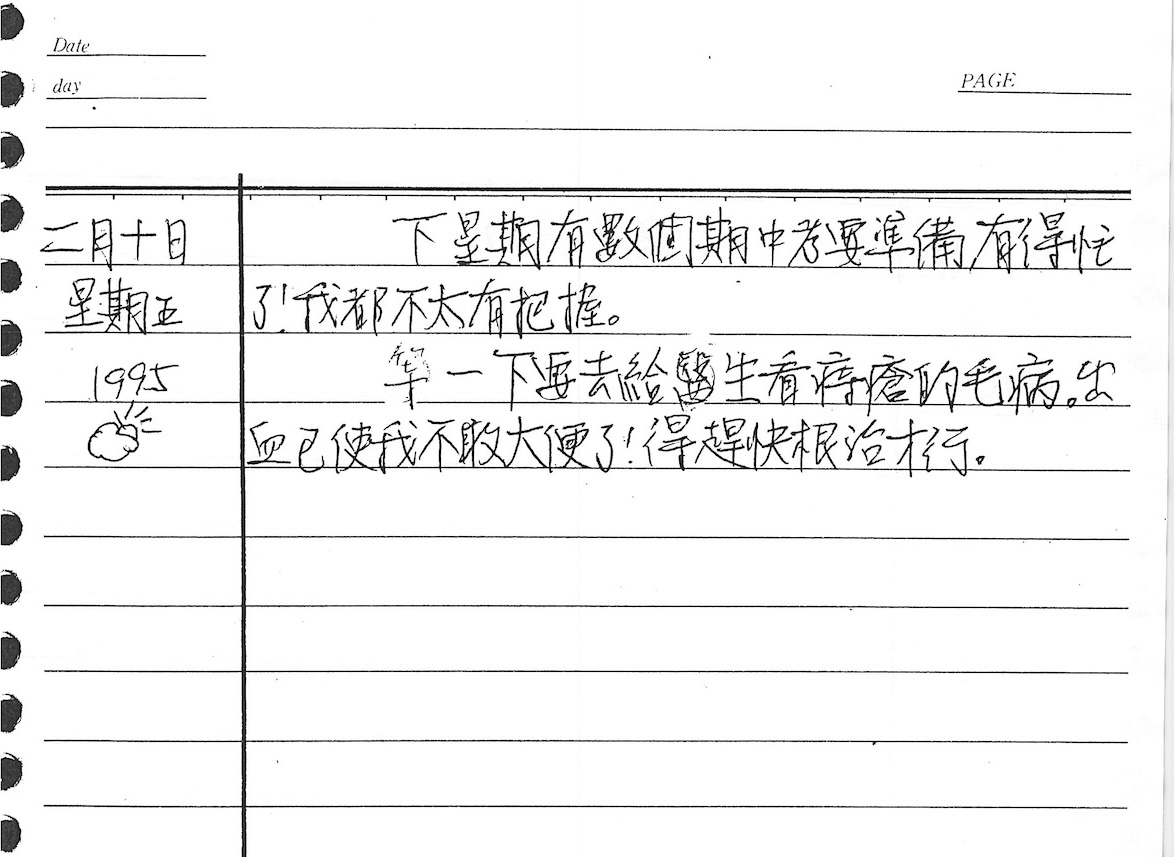 Date
day
PAGE
二月十日
星期五
1995
下星期有數個期中考要準備,有得忙
了!我都不太有把握。
等一下要去給醫生看痔瘡的毛病。出
血已使我不敢大便了!得趕快根治才行。